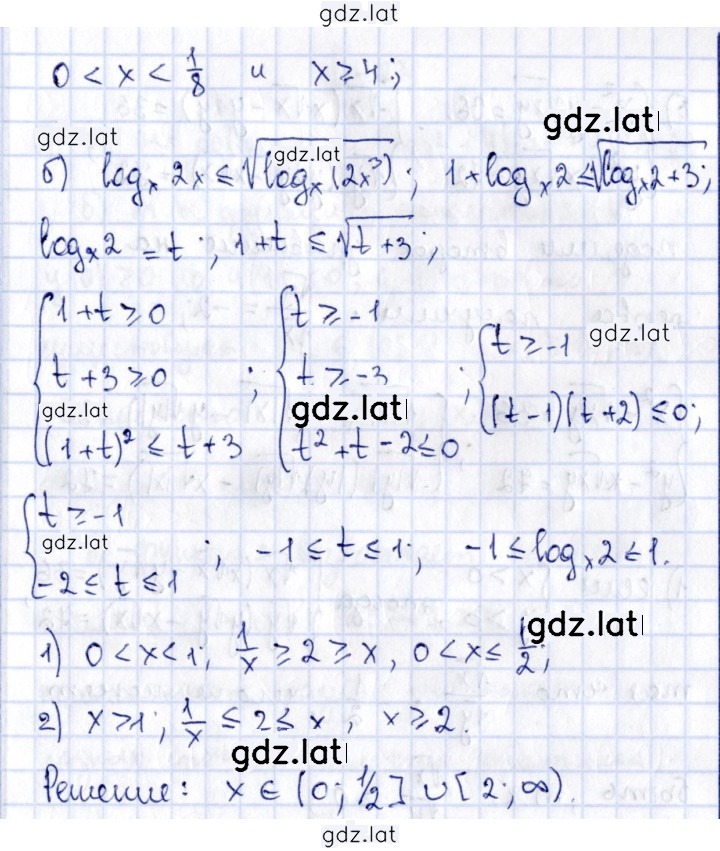 gdz.lat
0 < x < 1/8 и x ≥ 4;
gdz.lat gdz.lat
gdz.lat
б) logₓ 2x ≤ √(logₓ (2x³)); 1 + logₓ 2 ≤ √(logₓ 2 + 3);
logₓ 2 = t; 1 + t ≤ √(t + 3);
{ 1 + t ≥ 0
t + 3 ≥ 0
(1 + t)² ≤ t + 3 ;
{ t ≥ -1
t ≥ -3
t² + t - 2 ≤ 0 ;
{ t ≥ -1
(t - 1)(t + 2) ≤ 0;
gdz.lat
gdz.lat gdz.lat
{ t ≥ -1
-2 ≤ t ≤ 1 ; -1 ≤ t ≤ 1; -1 ≤ logₓ 2 ≤ 1.
gdz.lat
1) 0 < x < 1; 1/x ≥ 2 ≥ x, 0 < x ≤ 1/2;
gdz.lat
2) x > 1; 1/x ≤ 2 ≤ x, x ≥ 2.
gdz.lat
Решение: x ∈ (0; 1/2] ∪ [2; ∞).
gdz.lat